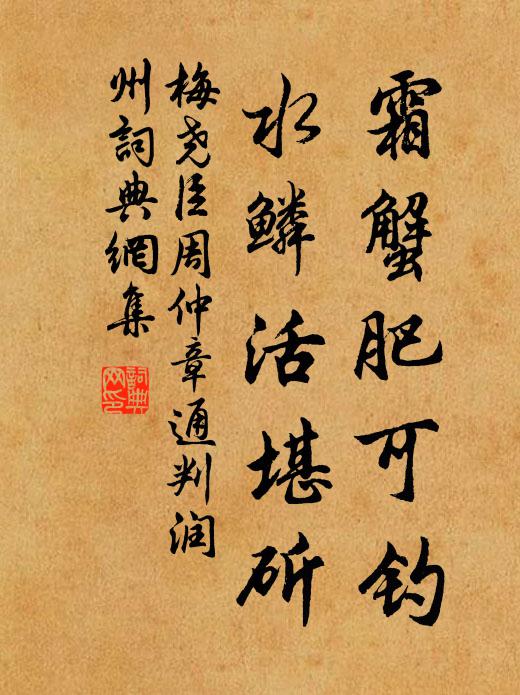 霜蟹肥可钓
水鳞活堪斫
梅尧臣周仲章通判润
州詞典網集
詞典
网印